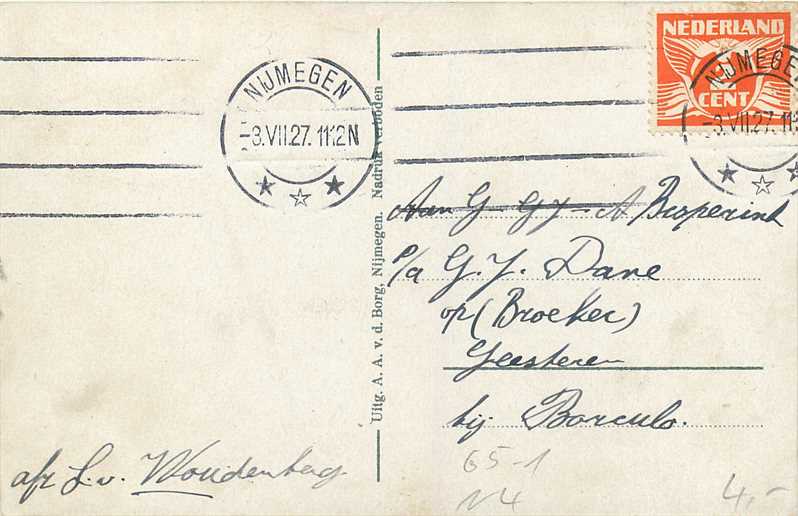 NEDERLAND
CENT
NIJMEGEN
-3.VII.27. 11-12N
NIJMEGEN
-3.VII.27. 11-12
Uitg. A. A. v. d. Borg, Nijmegen. Nadruk verboden
Aan G G J - A Bruperink
p/a G. J. Dane
op (Broeker)
Geesteren
bij Borculo.
afz L. v. Woudenberg
65-1
N4
4,-